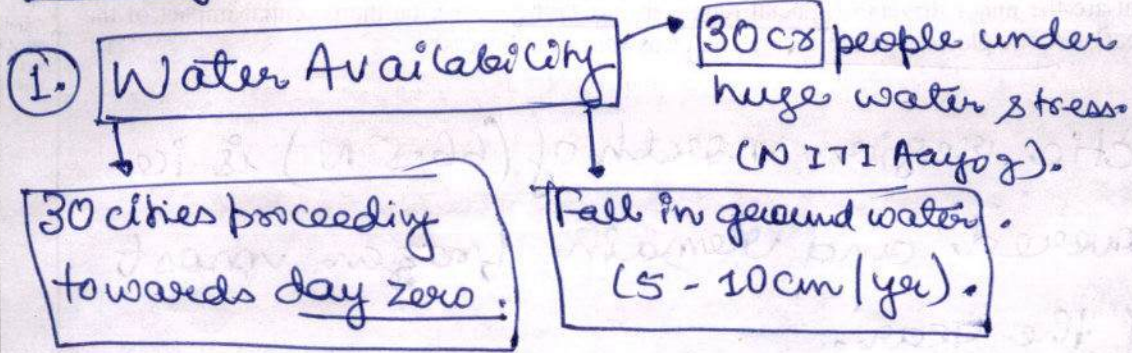 1. Water Availability
30 cr people under
huge water stress.
(NITI Aayog).
30 cities proceeding
towards day zero.
Fall in ground water.
(5 - 10 cm / yr).